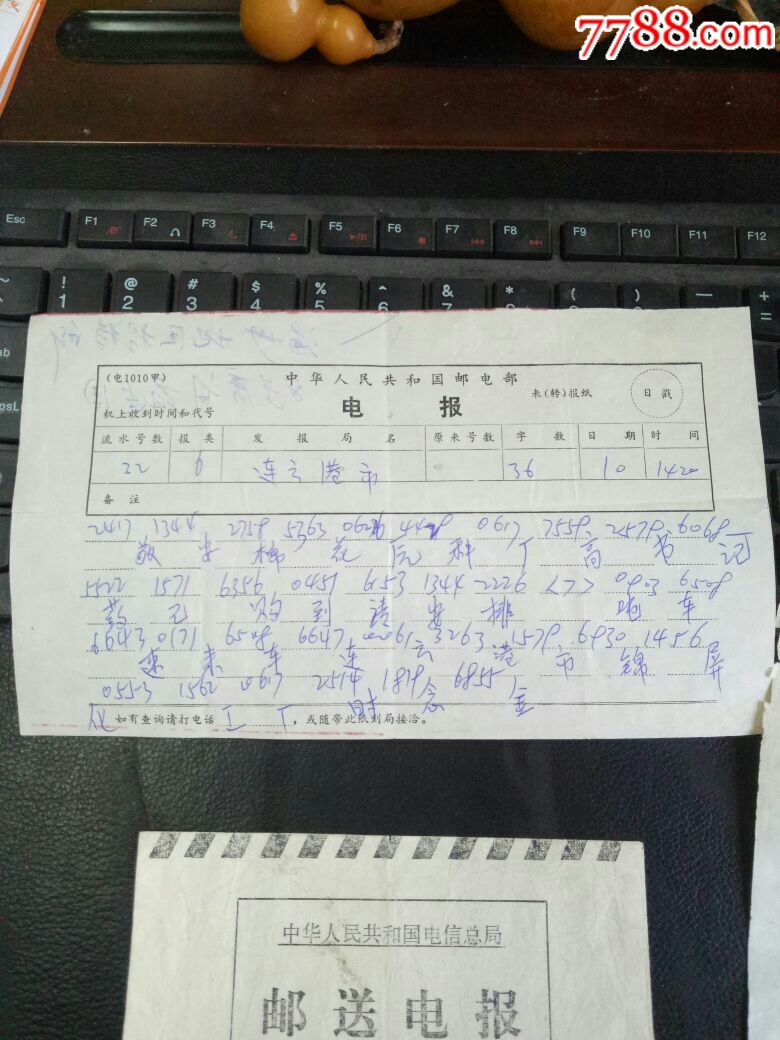 7788.com
Esc F1 F2 F3 F4 F5 F6 F7 F8 F9 F10 F11 F12
! @ # $ % ^ & * ( ) — +
1 2 3 4 5 6 7 8 9 0 - =
(电1010甲)
中华人民共和国邮电部
来(转)报纸
日戳
机上收到时间和代号
电 报
流水号数 报类 发报局名 原来号数 字数 日期 时间
32 6 连云港市 36 10 1420
备注
2417 1344 2758 5363 0626 0617 7559 2579 6068
敬安棉花 厂高书记
5522 1571 6356 0451 6153 1344 2226 <7> 6508
药已购到请安排 车
6643 0171 6508 6647 0061 3263 1579 6930 1456
速来车连云港市锦屏
0553 1562 0617 2514 1819 6855
化工厂时念金
如有查询请打电话 ,或随带此纸到局接洽。
中华人民共和国电信总局
邮送电报